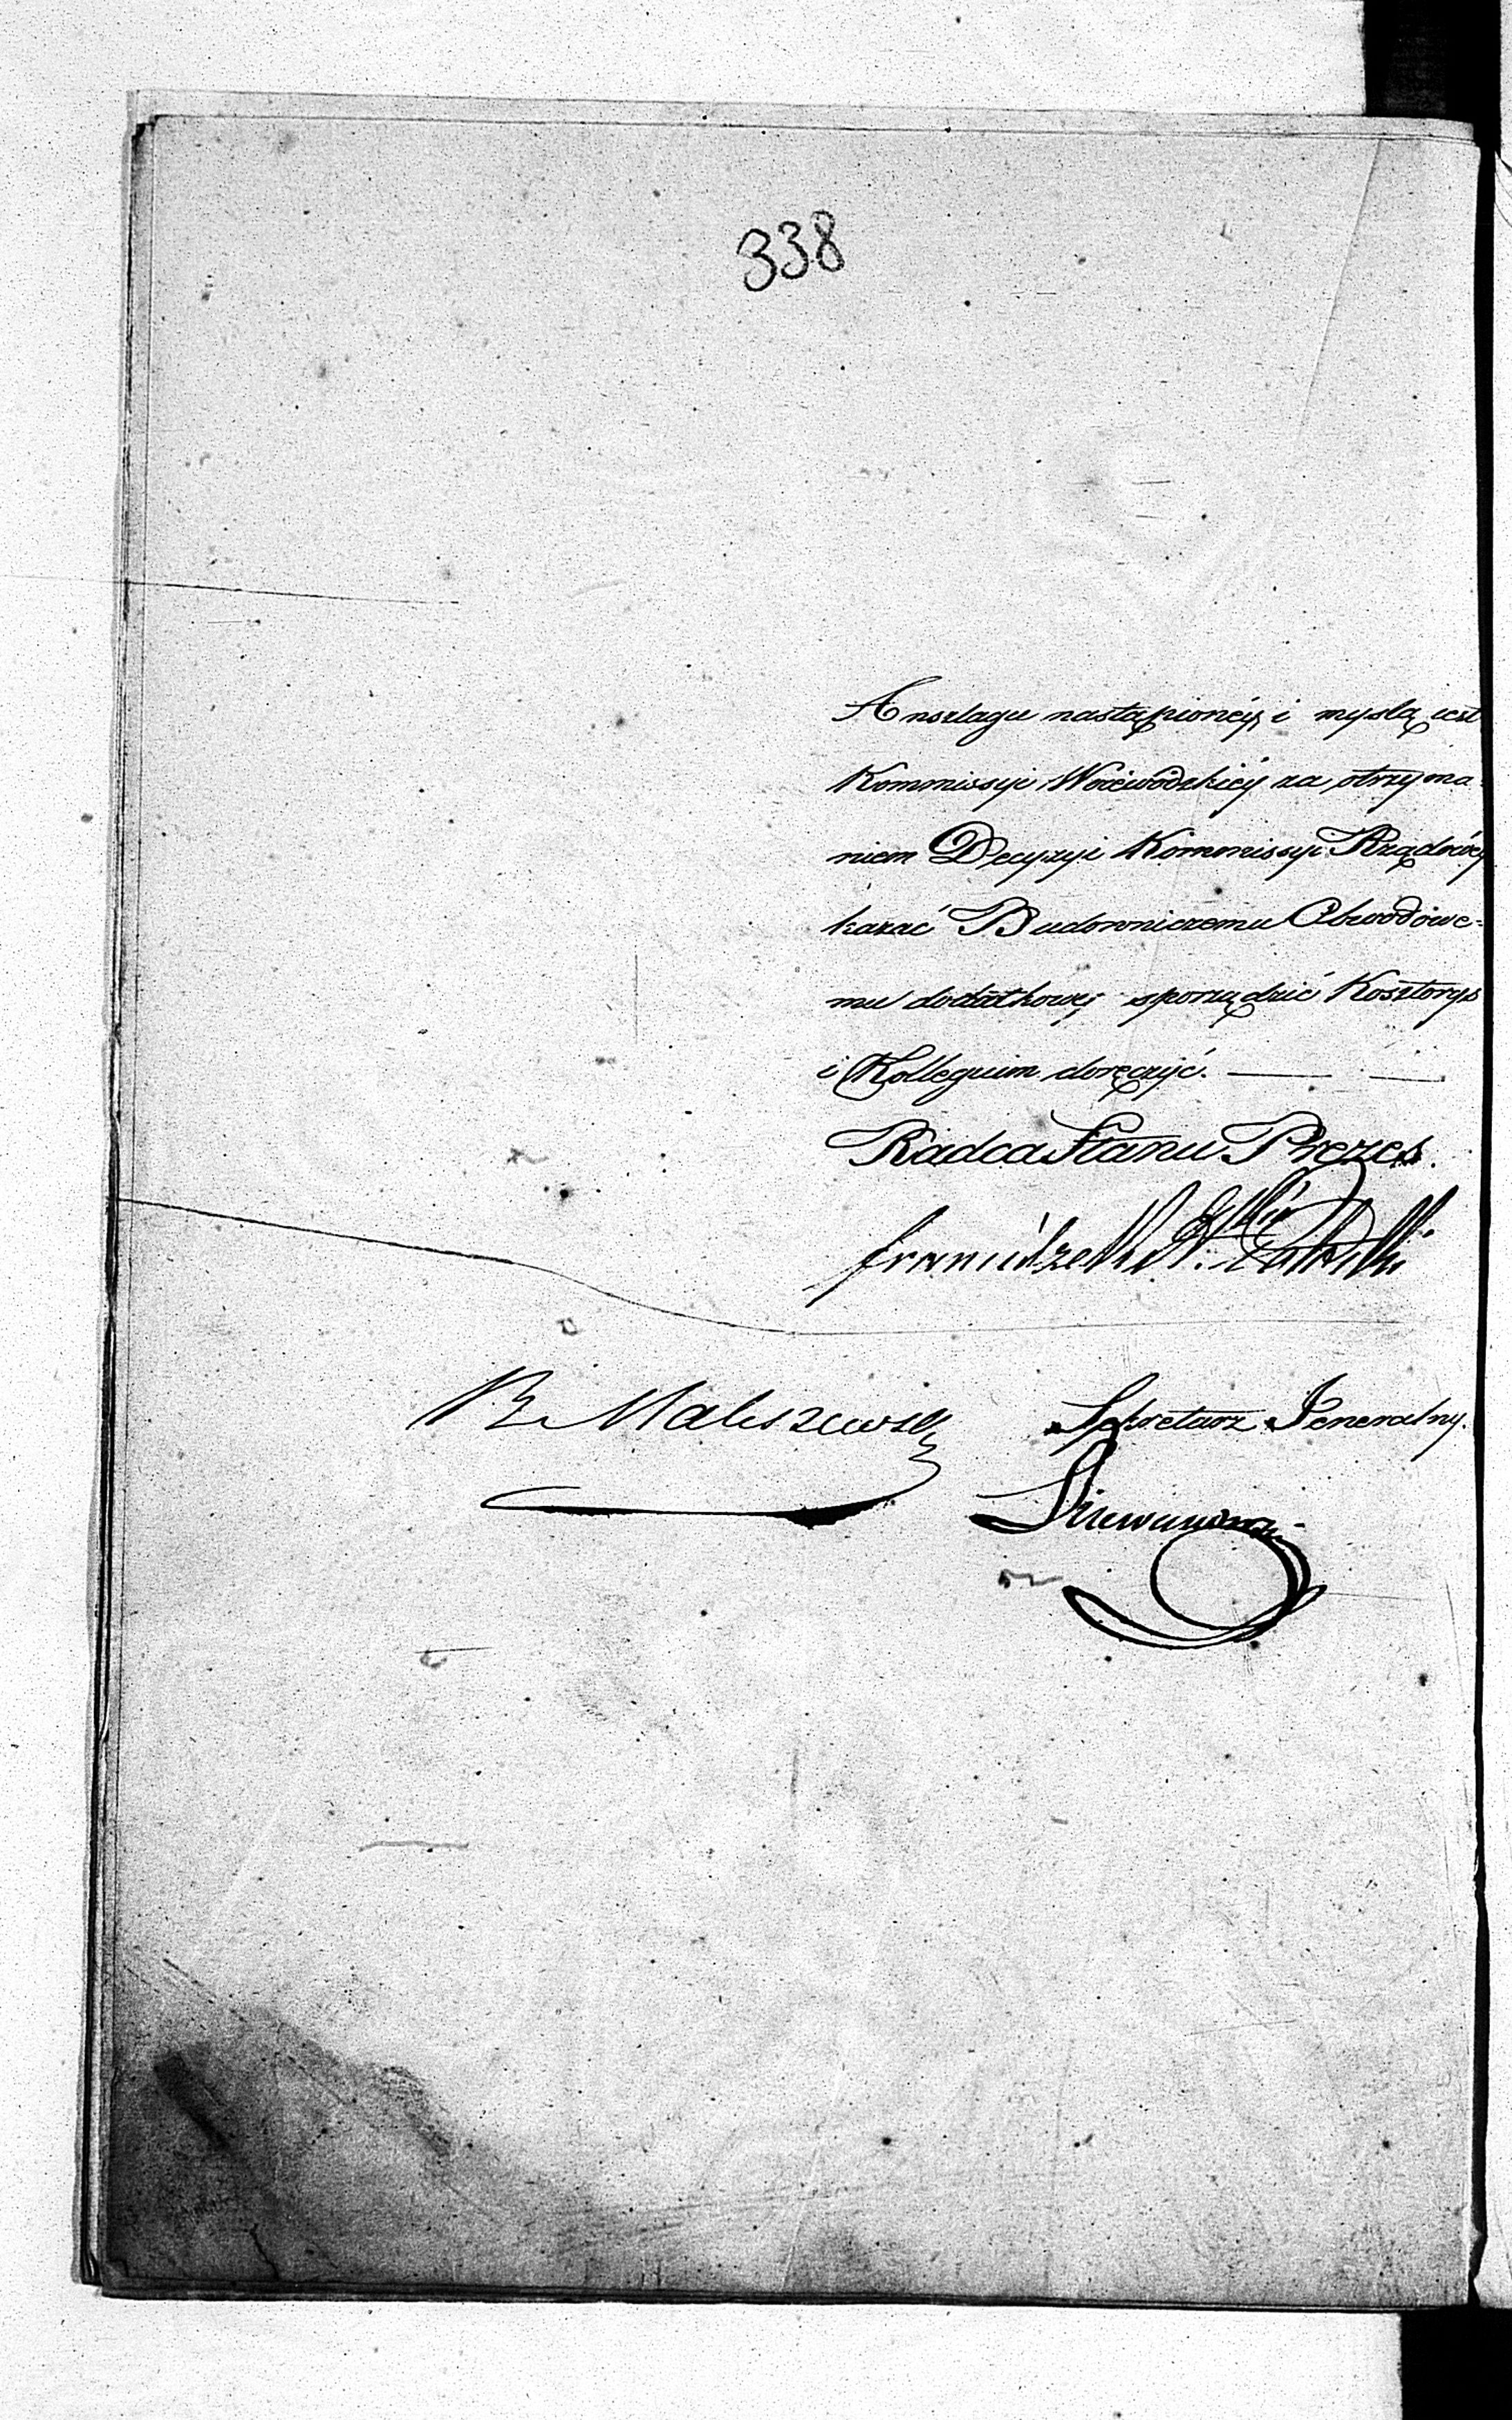 338
Anszlagu nastąpionéy, i myslą iest
Kommissyi Woiewódzkiéy za otrzyma-
niem Decyzyi Kommissyi Rządowéy
kazać Budowniczemu Obwodowe-
mu dodatkowy sporządzić Kosztorys
i Kollegium doręczyć.
Radca Stanu Prezes.
Franciszek
R Maleszewski
Sekretarz Jeneralny.